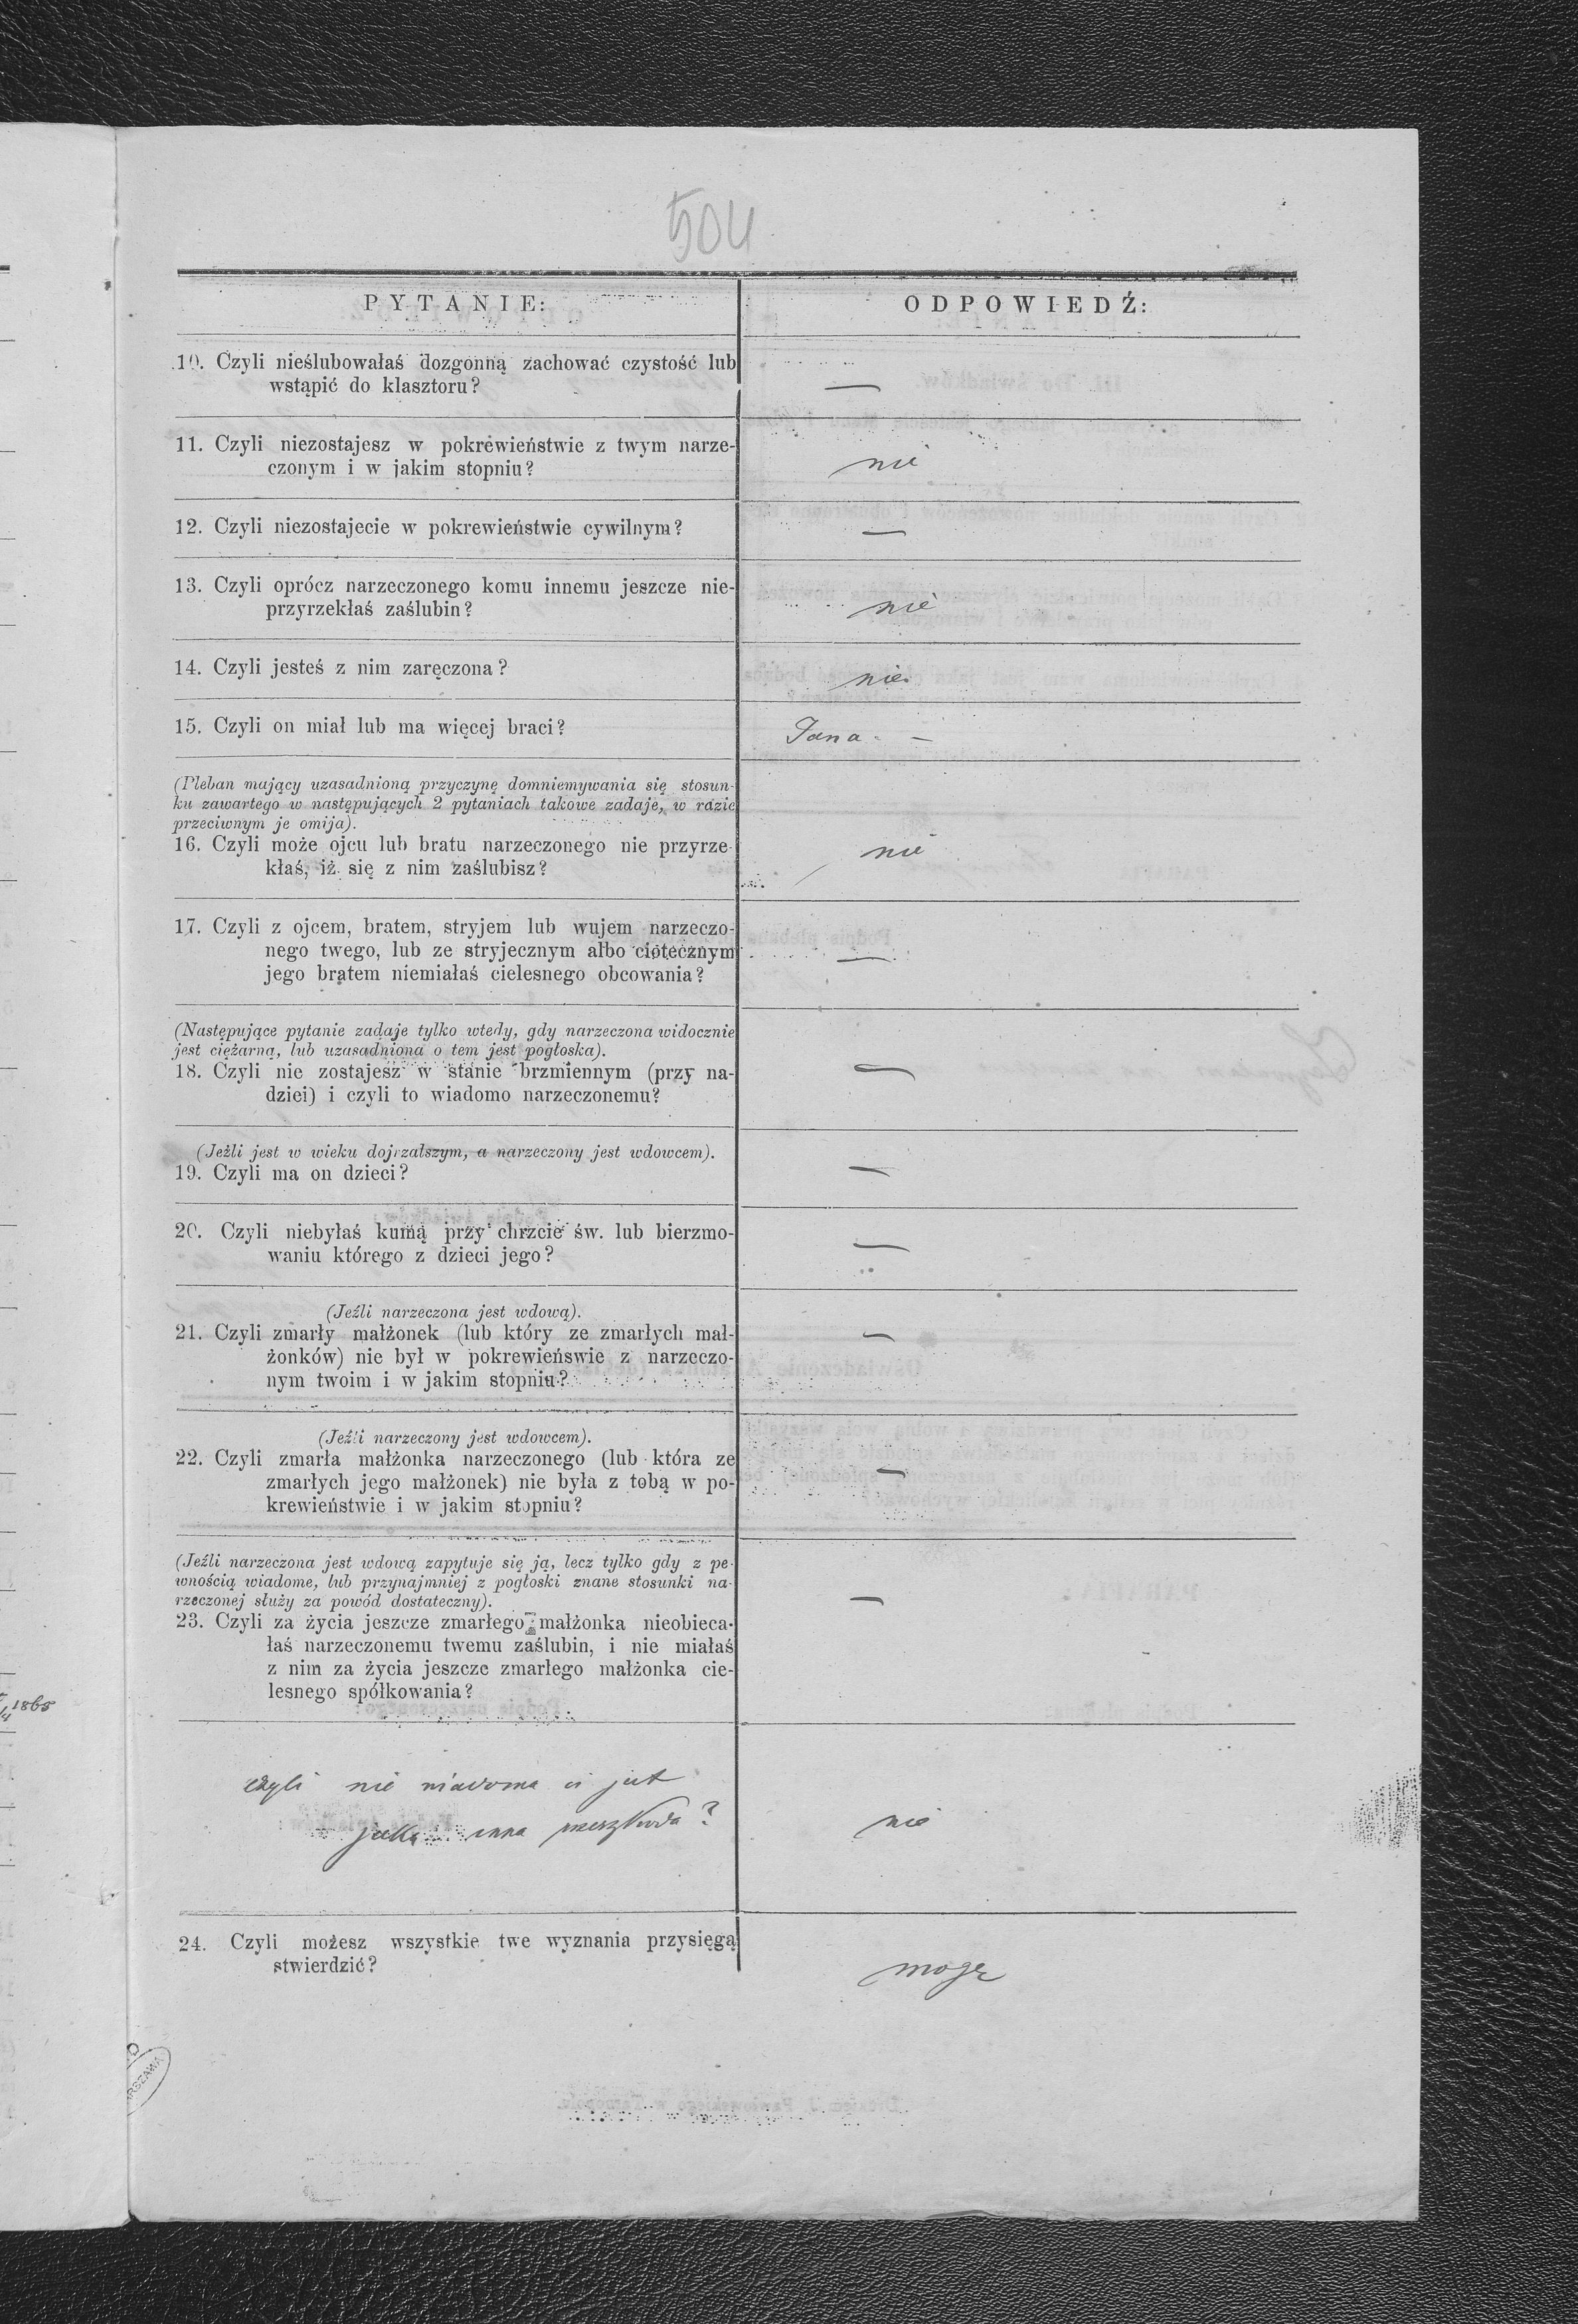 504
PYTANIE: ODPOWIEDŹ:
10. Czyli nieślubowałaś dozgonną zachować czystość lub
wstąpić do klasztoru? —
11. Czyli niezostajesz w pokrewieństwie z twym narze-
czonym i w jakim stopniu? nie
12. Czyli niezostajecie w pokrewieństwie cywilnym? —
13. Czyli oprócz narzeczonego komu innemu jeszcze nie-
przyrzekłaś zaślubin? nie
14. Czyli jesteś z nim zaręczona? nie
15. Czyli on miał lub ma więcej braci? Jana. —
(Pleban mający uzasadnioną przyczynę domniemywania się stosun-
ku zawartego w następujących 2 pytaniach takowe zadaje, w razie
przeciwnym je omija).
16. Czyli może ojcu lub bratu narzeczonego nie przyrze-
kłaś, iż się z nim zaślubisz? nie
17. Czyli z ojcem, bratem, stryjem lub wujem narzeczo-
nego twego, lub ze stryjecznym albo ciotecznym
jego bratem niemiałaś cielesnego obcowania? —
(Następujące pytanie zadaje tylko wtedy, gdy narzeczona widocznie
jest ciężarną, lub uzasadniona o tem jest pogłoska).
18. Czyli nie zostajesz w stanie brzmiennym (przy na-
dziei) i czyli to wiadomo narzeczonemu? —
(Jeźli jest w wieku dojrzalszym, a narzeczony jest wdowcem).
19. Czyli ma on dzieci? —
20. Czyli niebyłaś kumą przy chrzcie św. lub bierzmo-
waniu którego z dzieci jego? —
(Jeźli narzeczona jest wdową).
21. Czyli zmarły małżonek (lub który ze zmarłych mał-
żonków) nie był w pokrewieńswie z narzeczo-
nym twoim i w jakim stopniu? —
(Jeźli narzeczony jest wdowcem).
22. Czyli zmarła małżonka narzeczonego (lub która ze
zmarłych jego małżonek) nie była z tobą w po-
krewieństwie i w jakim stopniu? —
(Jeźli narzeczona jest wdową zapytuje się ją, lecz tylko gdy z pe-
wnością wiadome, lub przynajmniej z pogłoski znane stosunki na-
rzeczonej służy za powód dostateczny).
23. Czyli za życia jeszcze zmarłego małżonka nieobieca-
łaś narzeczonemu twemu zaślubin, i nie miałaś
z nim za życia jeszcze zmarłego małżonka cie-
lesnego spółkowania? —
1865
czyli nie wiadoma ci jest
jaka inna przeszkoda? nie
24. Czyli możesz wszystkie twe wyznania przysięgą
stwierdzić? mogę